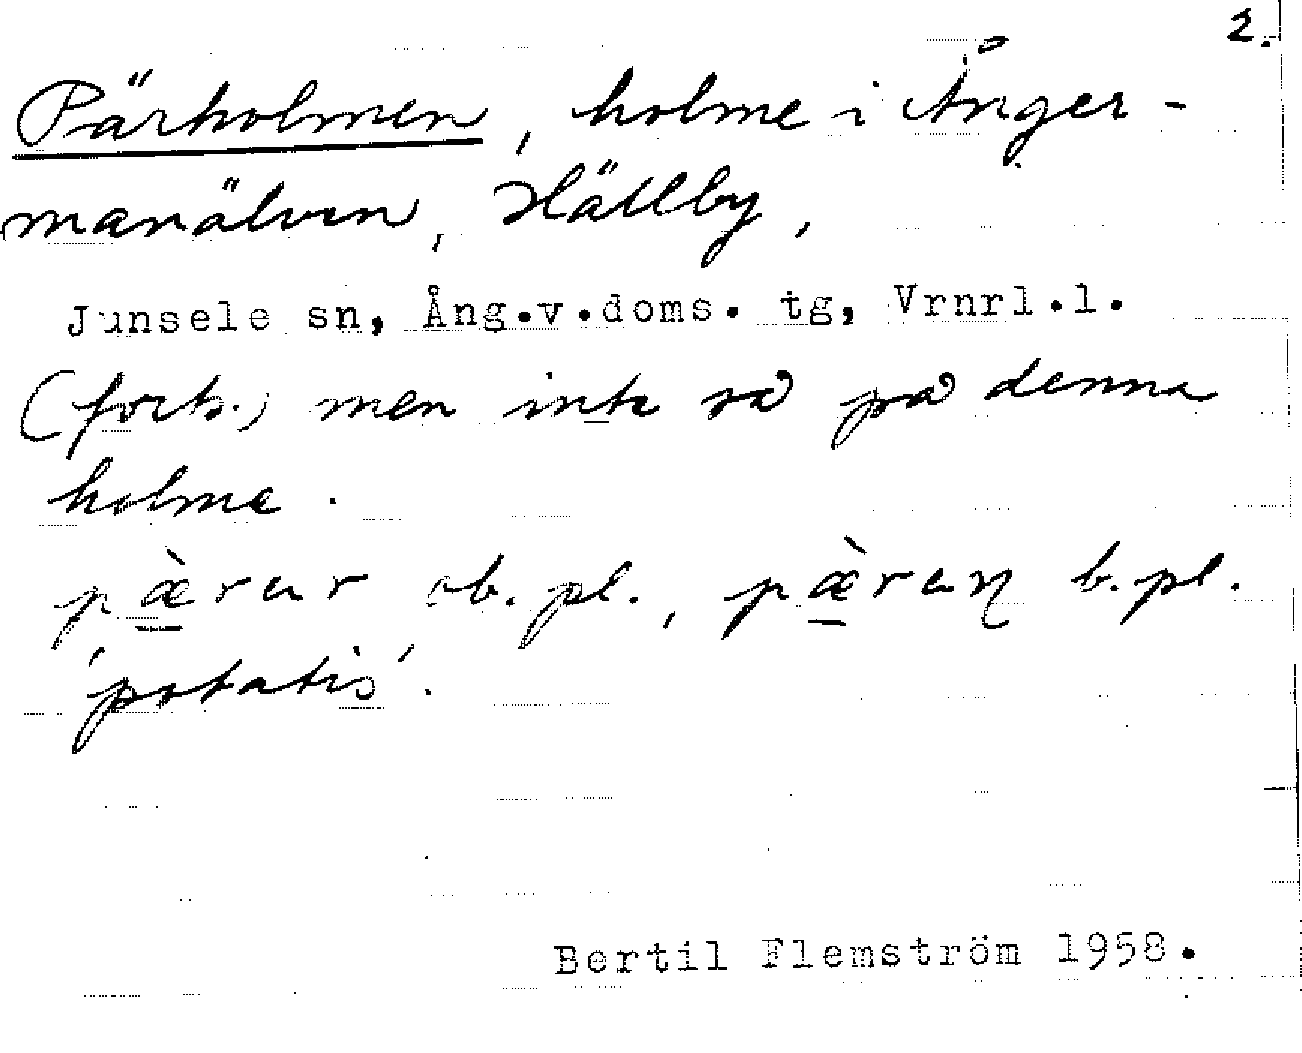 2.
Pärholmen, holme i Ånger-
manälven, Hällby,
Junsele sn, Ång.v.doms. tg, Vrnrl.l.
(forts.) men inte så på denna
holme.
pæ̀rar ob. pl., pæ̀raɳ b. pl.
'potatis'.
Bertil Flemström 1958.